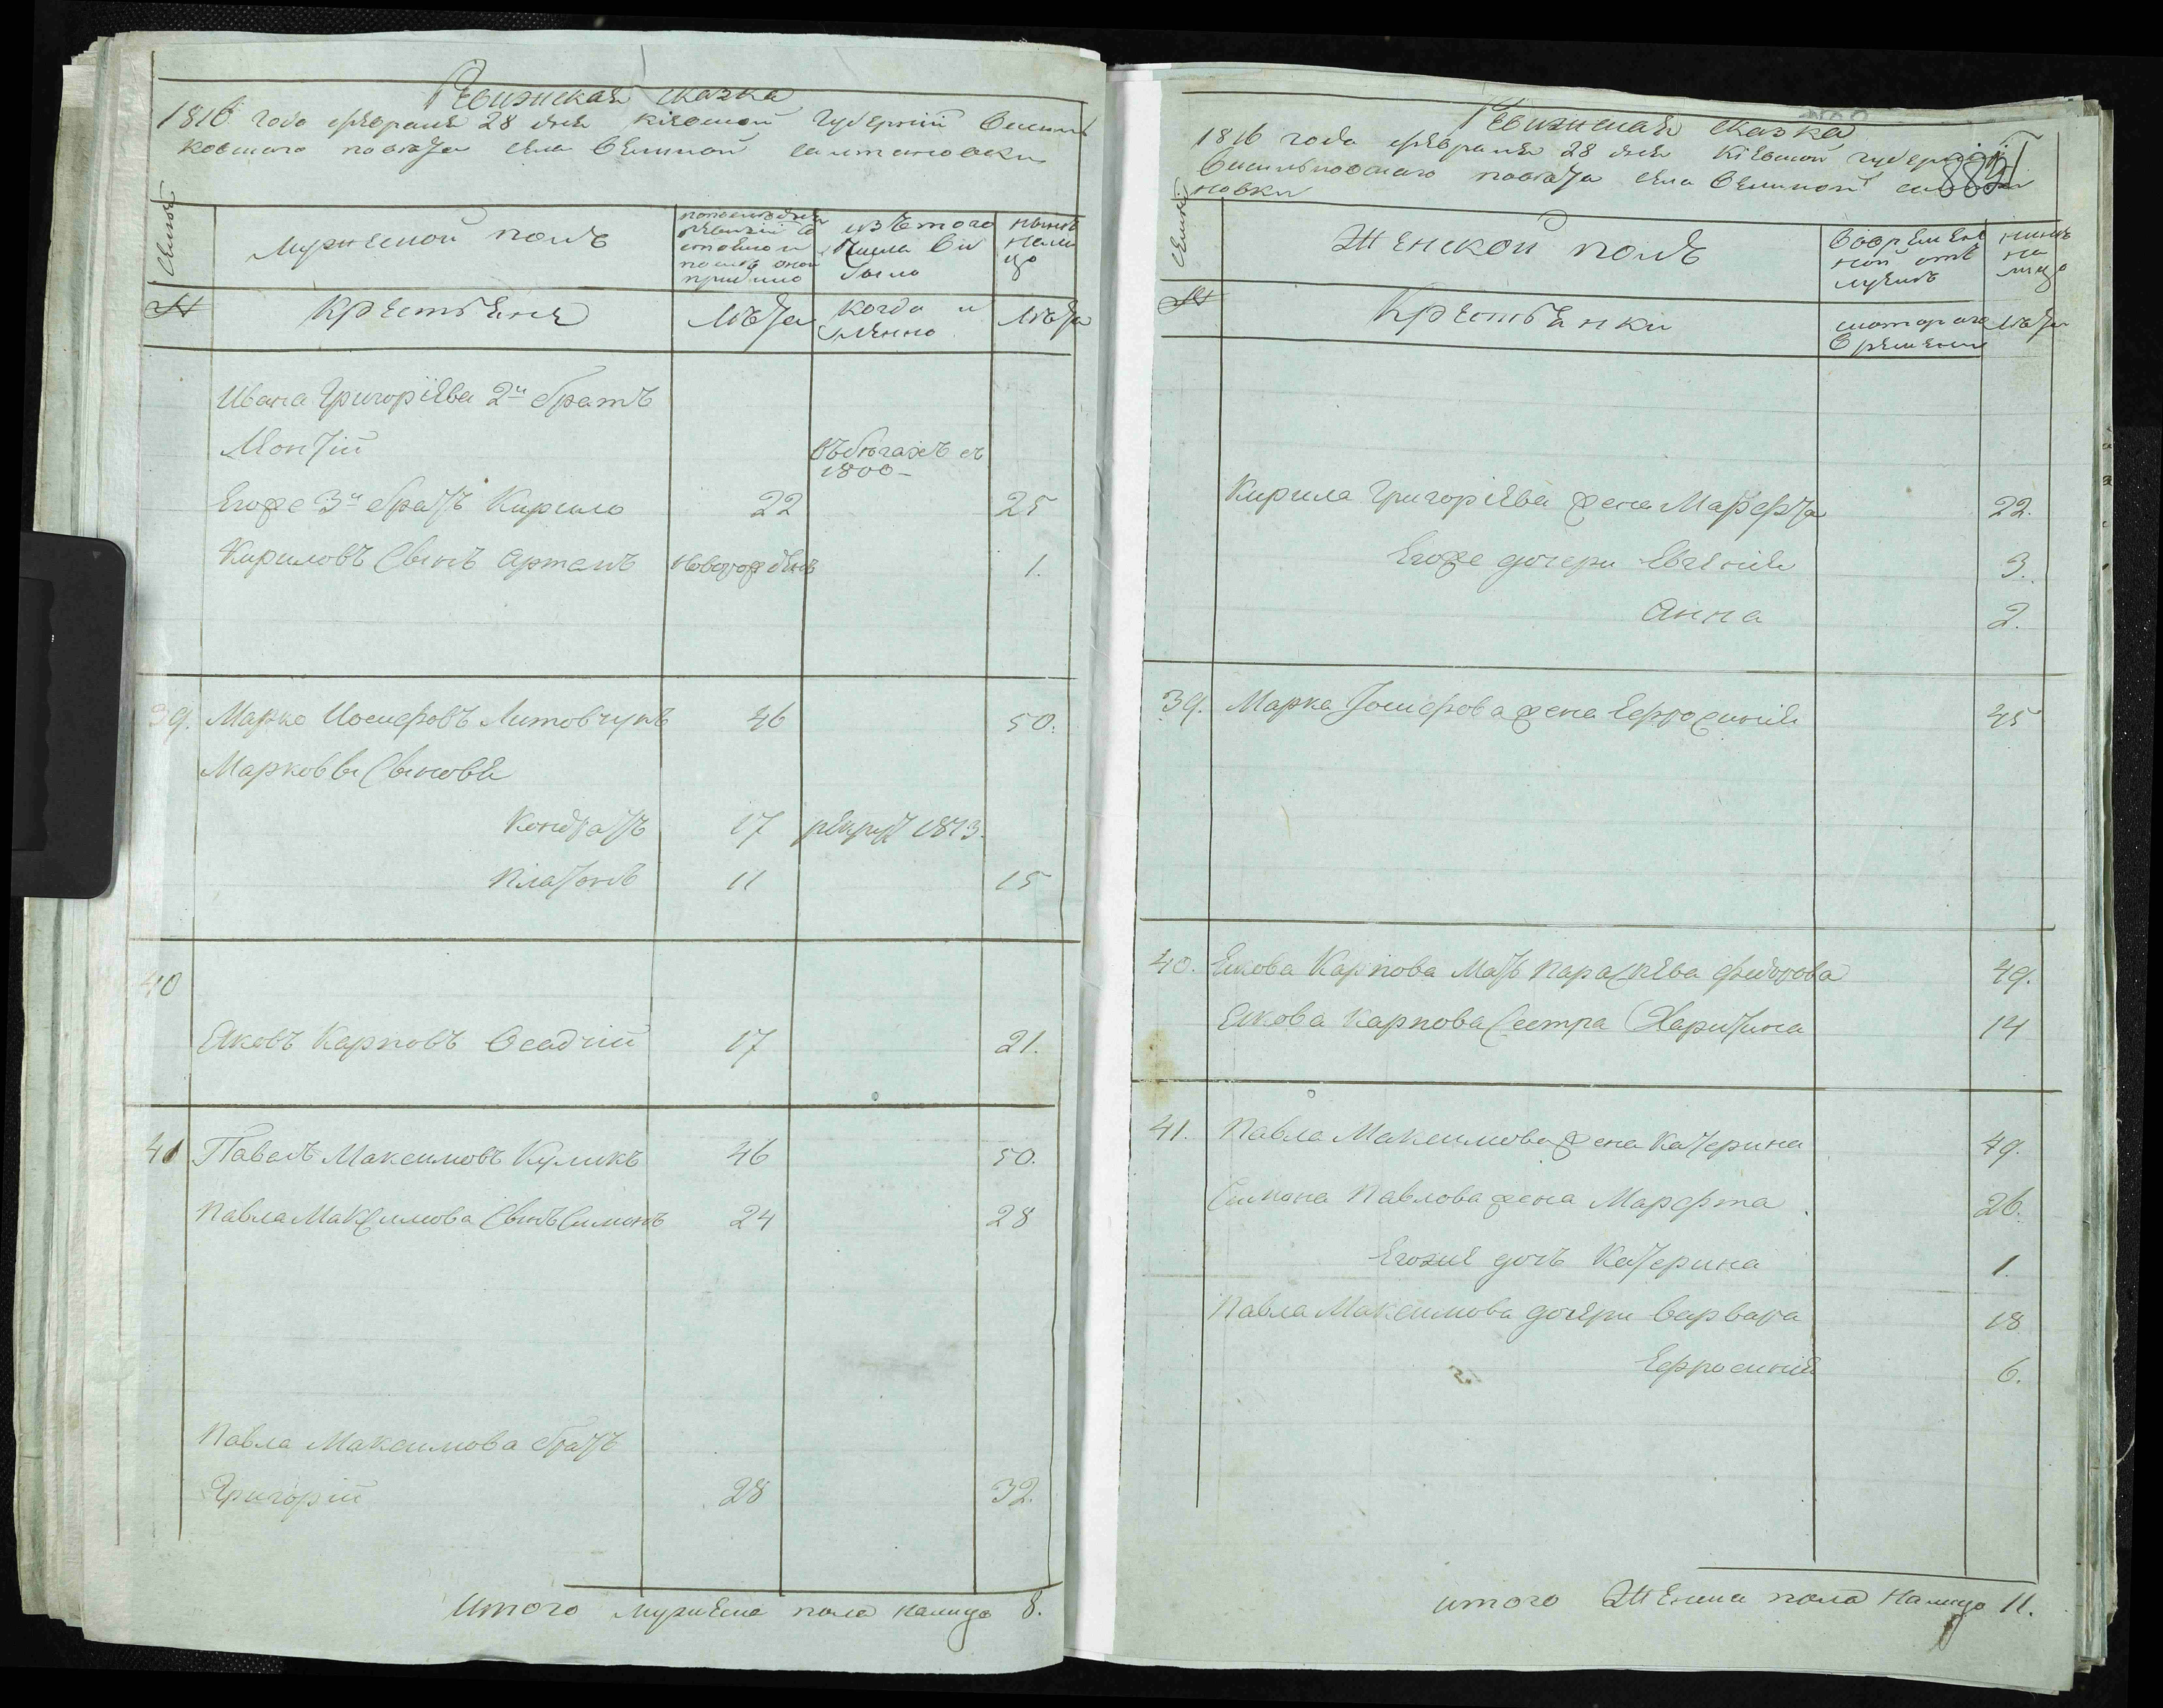 Ревизская сказка
1816 года февраля 28 дня Кіевской Губерніи Василь
ковского повета села Великой Салтановки
Семьи
Мужеской полъ
по последней ревизіи состояло и после оной прибыло
изъ того числа выбыло
ныне на лицо
№
Крестьяне
Лѣта
когда именно
Лѣта
Ивана Григоріева 2й братъ
Монтій
въ бѣгахъ съ
1800
Егоже 3й братъ Кирило 22 25
Кириловъ сынъ Артемъ новорожденъ 1.
39. Марко Иосифовъ Литовчукъ 46 50.
Марковы сыновя
Кондратъ 17 рекрут 1813.
Платонъ 11 15
40
Яковъ Карповъ Осадчій 17 21.
41 Павелъ Максимовъ Куликъ 46 50.
Павла Максимова сынъ Симонъ 24 28
Павла Максимова братъ
Григорій 28 32.
Итого мужеска пола налицо 8.
Ревизская сказка
1816 года февраля 28 дня Кіевской губерніи
Васильковского повета села Великой
новки
882
Семьи
Женской полъ
во временной отлучке
ныне на лицо
№
Крестьянки
с которого времени
лѣта
Кирила Григоріева жена Марфта 22.
Егоже дочери Евгенія 3.
Анна 2.
39. Марка Іосифова жена Ефросинія 45
40. Якова Карпова мать Параскева Федорова 49.
Якова Карпова сестра Харитина 14
41. Павла Максимова жена Катерина 49.
Симона Павлова жена Марфта 26.
Егоже дочь Катерина 1.
Павла Максимова дочери Варвара 18
Ефросинія 6.
итого Женска пола налицо 11.